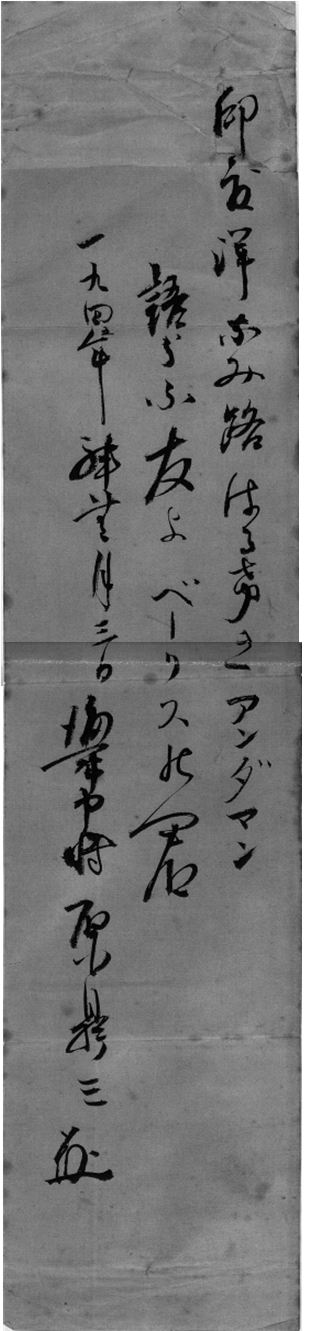 印度洋なみ路はるけきアンダマン
語らふ友よベーリスの君
一九四五年拾壹月三日 海軍中将 原鼎三